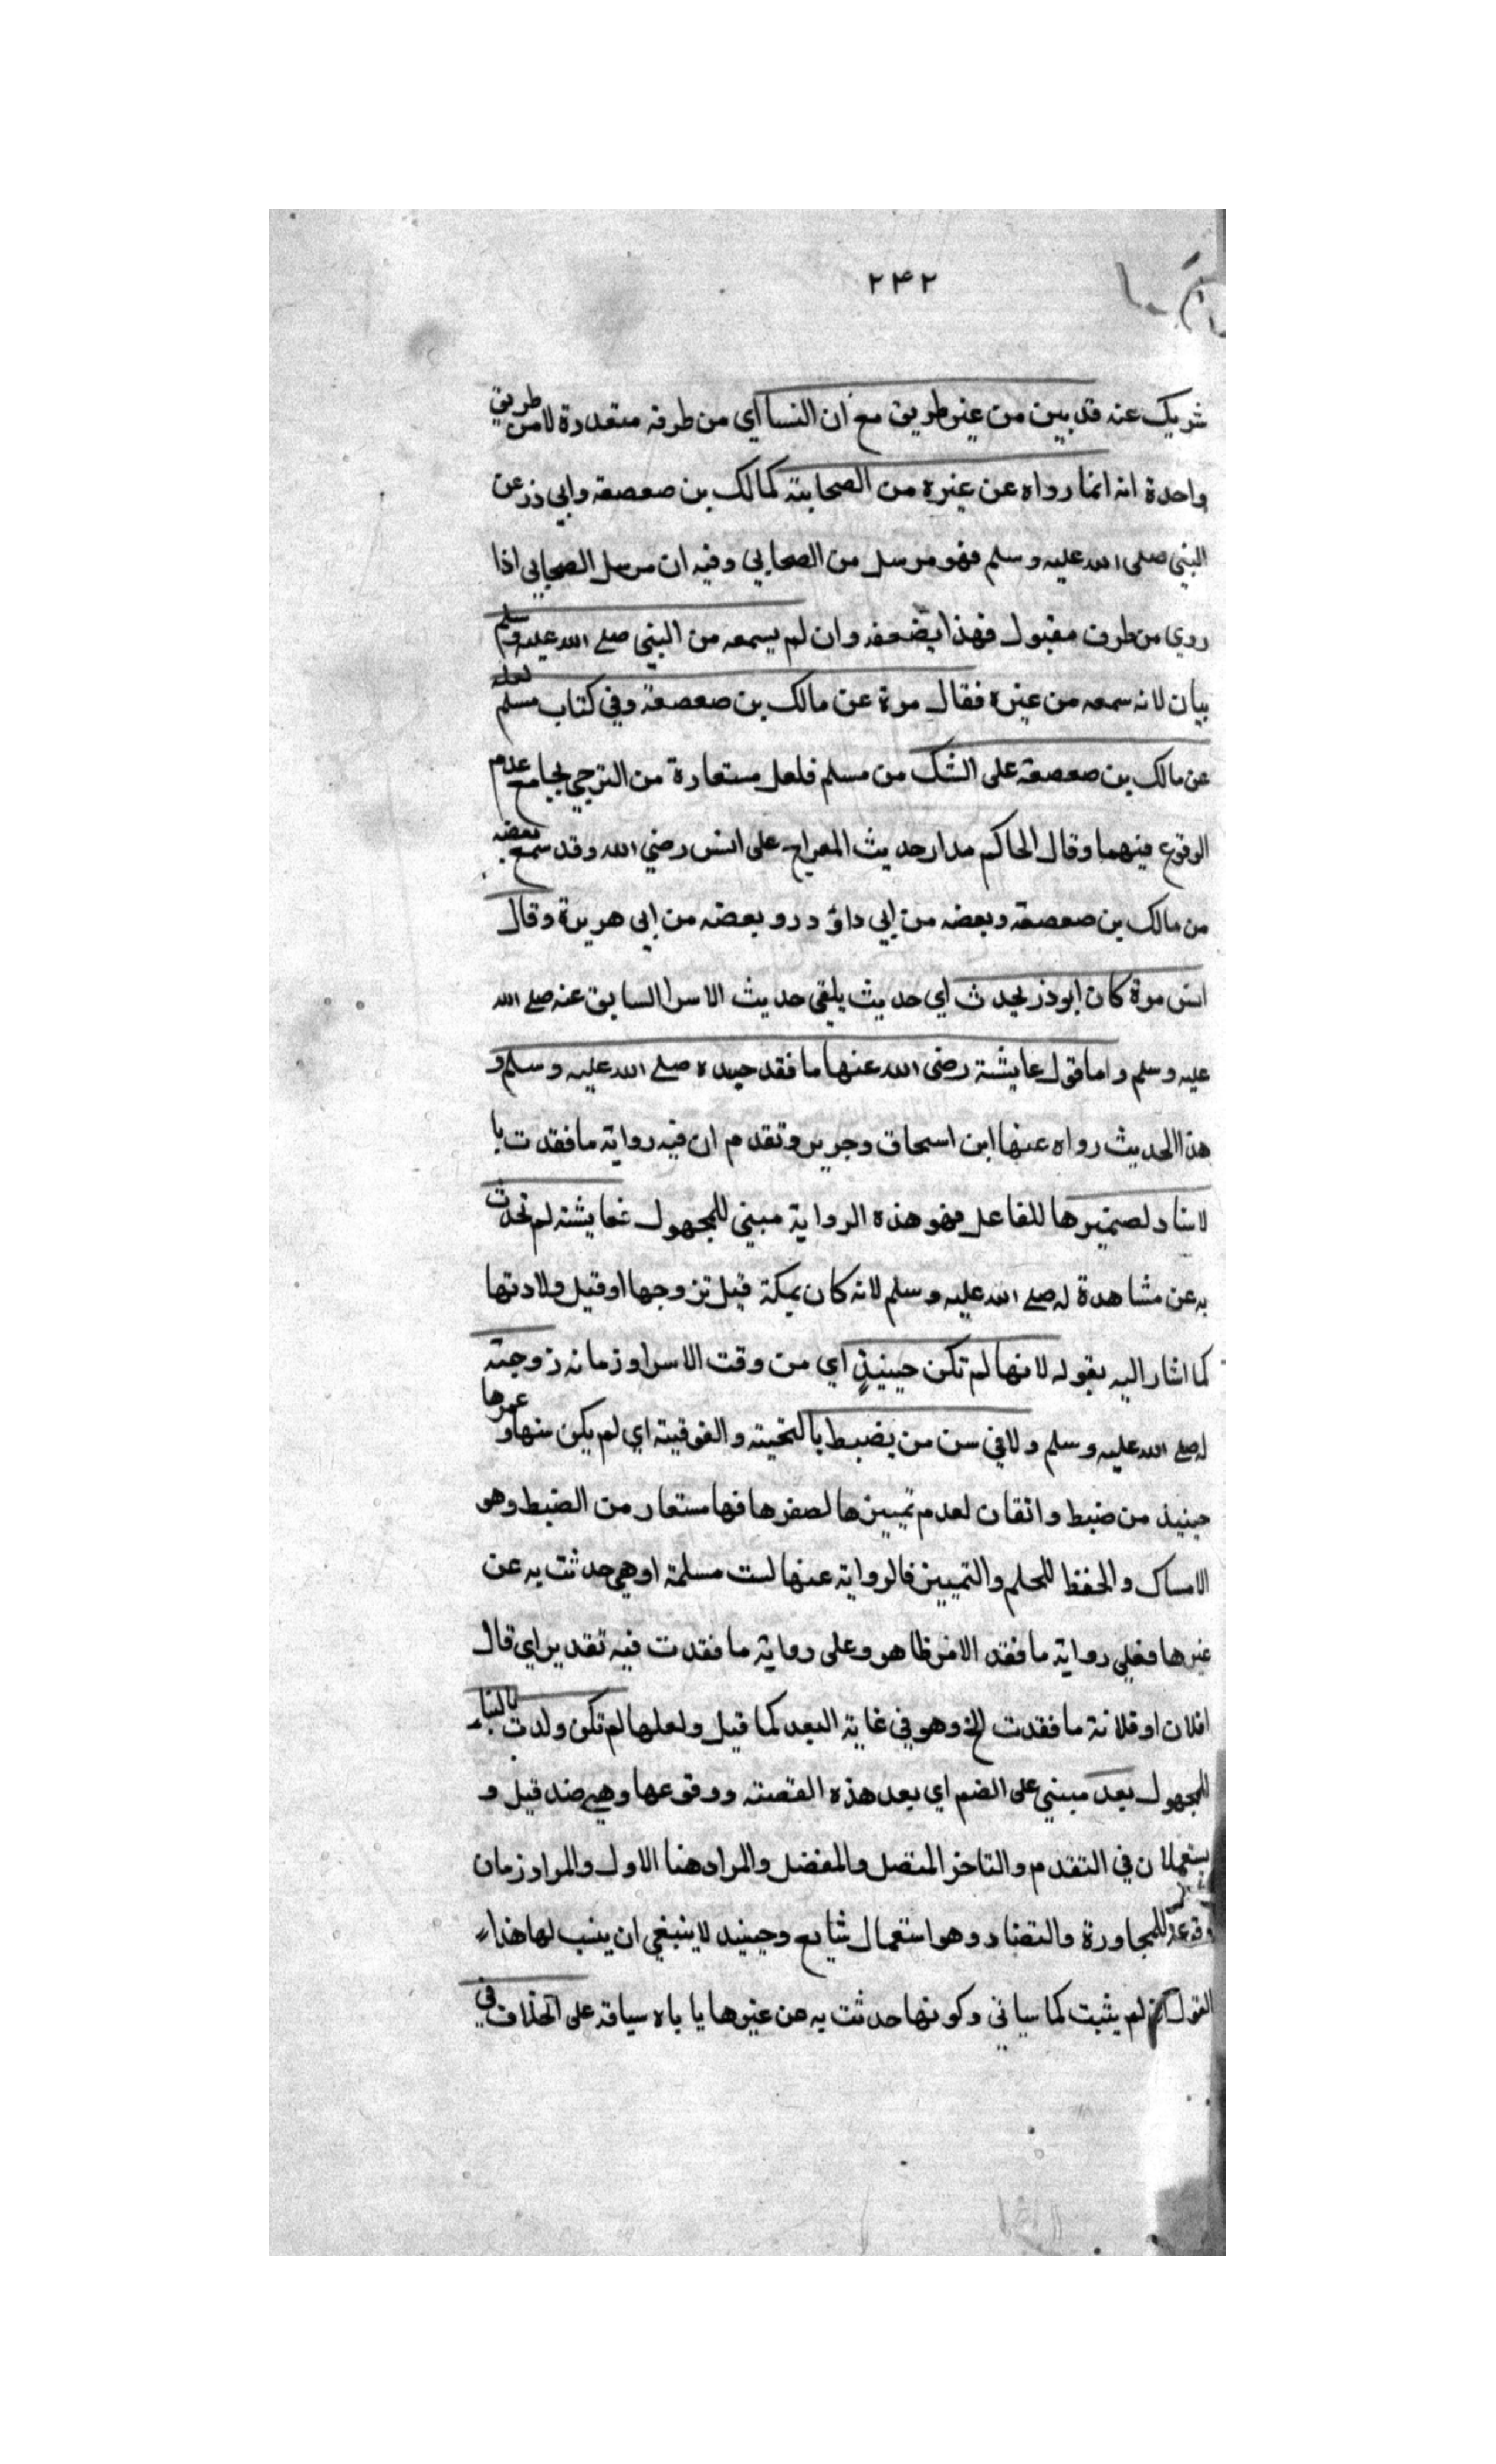 ٢٤٢
شريك عنه قد بين من غير طريق مع ان النسا اي من طرقه متعددة لا من طريق
واحدة انه انما رواه عن غيره من الصحابة كمالك بن صعصعة وابي ذر عن
النبي صلى الله عليه وسلم فهو مرسل من الصحابي وفيه ان مرسل الصحابي اذا
روي من طرف مقبول فهذا يضعفه وان لم يسمعه من النبي صلے الله عليه وسلم
بيان لانه سمعه من غيره فقال مرة عن مالك بن صعصعة وفي كتاب مسلم لعله
عن مالك بن صعصعة على الشك من مسلم فلعل مستعارة من الترجي بجامع عدم
الوقوع فيهما وقال الحاكم مدار حديث المعراج على انس رضي الله وقد سمع بعضه
من مالك بن صعصعة وبعضه من ابي داؤد در وبعضه من ابي هريرة وقال
انس مرة كان ابوذر يحدث اي حديث يلقى حديث الاسرا السابق عنه صلے الله
عليه وسلم واما قول عايشة رضى الله عنها ما فقد جسده صلے الله عليه وسلم و
هذا الحديث رواه عنها ابن اسحاق وجرير وتقدم ان فيه رواية ما فقدت با
لاسناد لضميرها للفاعل فهو هذه الرواية مبني للمجهول فعايشة لم تحدث
به عن مشاهدة له صلے الله عليه وسلم لانه كان بمكة قبل تزوجها او قبل ولادتها
كما اشار اليه بقوله لانها لم تكن حينيذٍ اي من وقت الاسرا وزمانه زوجته
له صلے الله عليه وسلم ولا في سن من يضبط بالتحيته والفوقيته اي لم يكن سنها و عمرها
حينيذ من ضبط واتقان لعدم تمييزها لصغرها فها مستعار من الضبط وهو
الامساك والحفظ للحلم والتمييز فالرواية عنها لست مسلمة او هي حدثت به عن
غيرها فعلى رواية ما فقد الامر ظاهر وعلى رواية ما فقدت فيه تقدير اي قال
افلان او فلانة ما فقدت الخ وهو في غاية البعد كما قيل ولعلها لم تكن ولدت بالبنا
للمجهول بعد مبني على الضم اي بعد هذه القصته ووقوعها وهي ضد قبل و
يستعملان في التقدم والتاخر المتصل والمنفصل والمراد هنا الاول والمراد زمان
للمجاورة والتضاد وهو استعمال شايع وحينيذ لا ينبغي ان ينسب لها هذا
القول لم يثبت كما سياتي وكونها حدثت به عن غيرها يا باه سياقه على الخلاف في